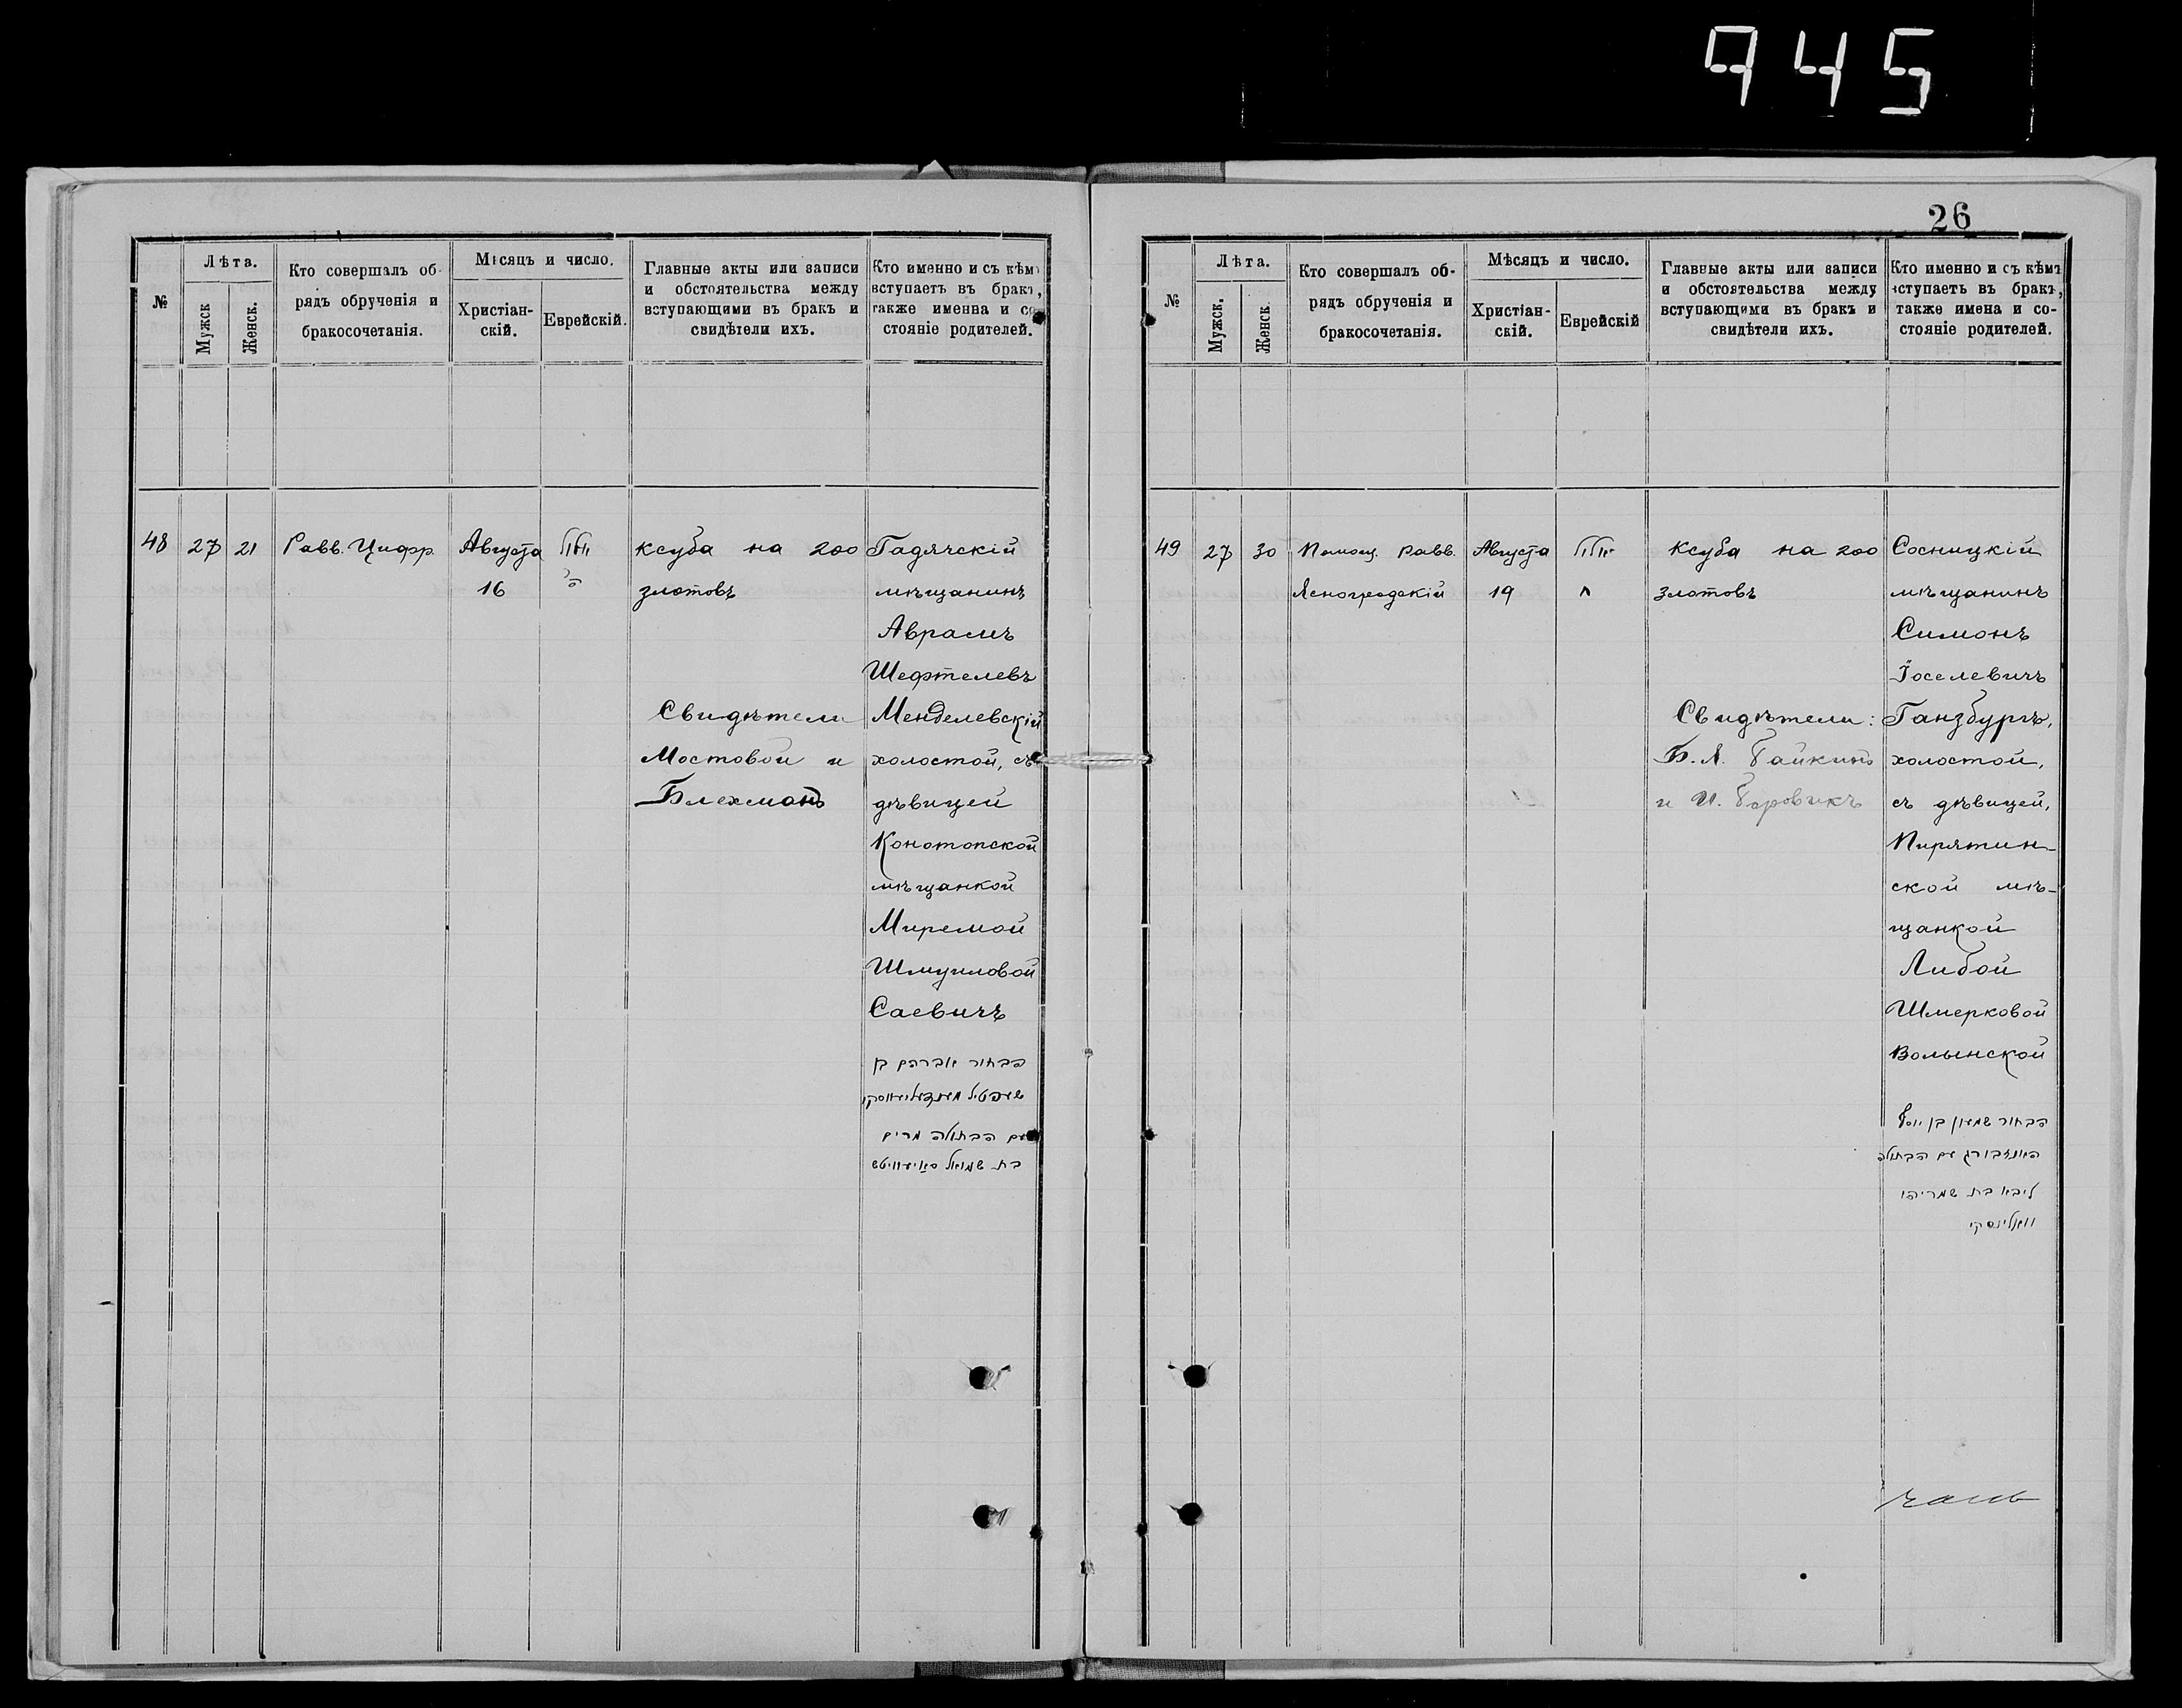 945
26
№
Лѣта.
Мужск
Женск.
Кто совершалъ об-
рядъ обрученія и
бракосочетанія.
Мѣсяцъ и число.
Христіан-
скій.
Еврейскій.
Главные акты или записи
и обстоятельства между
вступающими въ бракъ и
свидѣтели ихъ.
Кто именно и съ кѣмъ
вступаетъ въ бракъ,
также именна и со-
стояніе родителей.
48
27
21
Равв. Цифр
Августа
16
ксуба на 200
злотовъ
Свидѣтели
Мостовой и
Блехманъ
Гадячскій
мѣщанинъ
Аврамъ
Шефтелевъ
Менделевскій
холостой, съ
дѣвицей
Конотопской
мѣщанкой
Миремой
Шмуиловой
Саевичъ
הבחור אברהם בן
שעפטיל מענדעליעווסקי
עם הבתולה מרים
בת שמואל סאיעוויטש
№
Лѣта.
Мужск.
Женск.
Кто совершалъ об-
рядъ обрученія и
бракосочетанія.
Мѣсяцъ и число.
Христіан-
скій.
Еврейскій
Главные акты или записи
и обстоятельства между
вступающими въ бракъ и
свидѣтели ихъ.
Кто именно и съ кѣмъ
вступаетъ въ бракъ,
также имена и со-
стояніе родителей.
49
27
30
Помощ. равв.
Ясногродскій
Августа
19
Ксуба на 200
злотовъ
Свидѣтели:
Б. Я. Райкинъ
и И. Боровикъ
Сосницкій
мѣщанинъ
Симонъ
Іоселевичъ
Ганзбургъ,
холостой,
съ дѣвицей,
Пирятин-
ской мѣ-
щанкой
Либой
Шмерковой
Волынской
הבחור שמעון בן יוסף
האנזבורג עם הבתולה
ליבא בת שמריהו
וואלינסקי